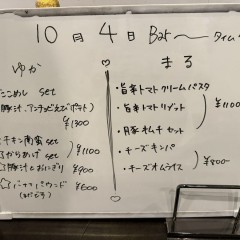 10月4日 Bar〜タイム
ゆか
たこめし set
(豚汁、アンチョビえびポテト)
¥1300
チキン南蛮 set
からあげ set
¥1100
豚汁とおにぎり ¥900
バナナパウンド ¥600
まる
・旨辛トマトクリームパスタ
・旨辛トマトリゾット
¥1100
・豚オムチセット
・チーズキンパ
・チーズオムライス
¥800